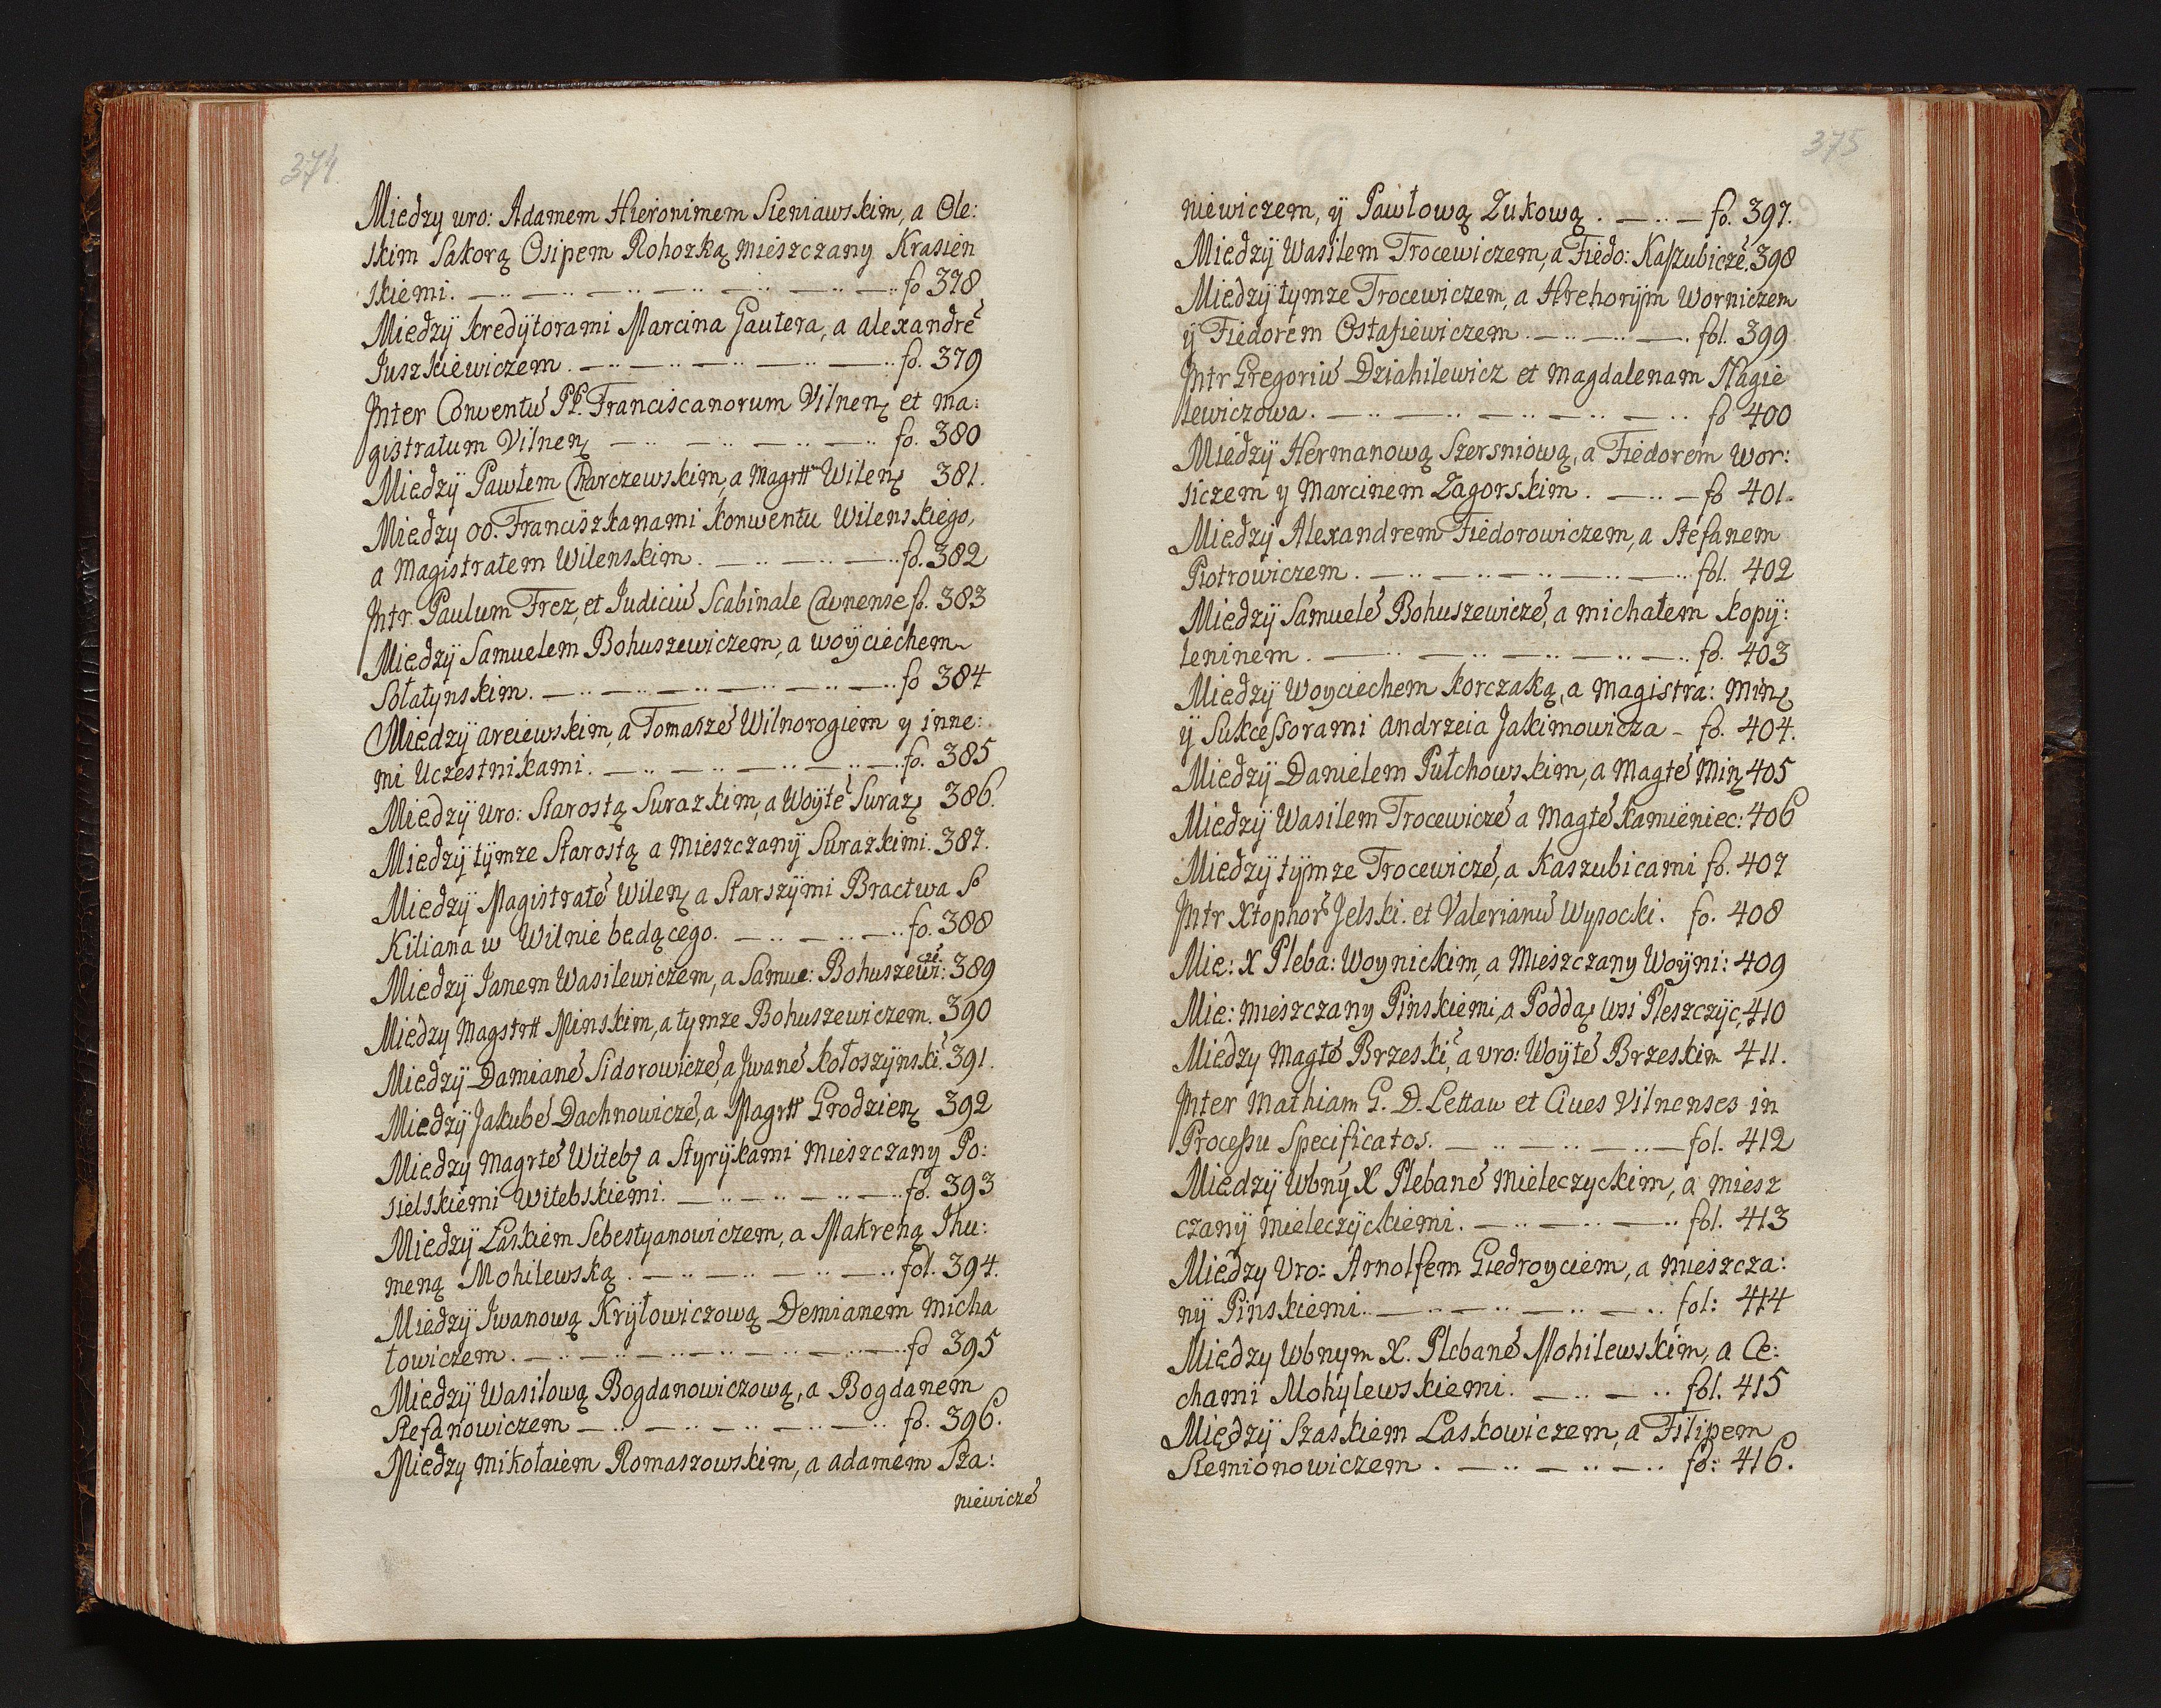 374.
Miedzy uro: Adamem Hieronimem Sieniawskim, a Ole:
skim Sakorą Osipem Rohozką mieszczany Krasien
skiemi. fo 378
Miedzÿ kredÿtorami Marcina Gautera, a alexandrē
Juszkiewiczem. fo. 379
Jnter Conventū PP. Franciscanorum Vilnenȝ et ma:
gistratum Vilnenȝ fo. 380
Miedzÿ Pawłem Charczewskim, a Magrttm Wilenȝ 381.
Miedzy oo. Franciszkanami konwentu Wilenskiego,
a Magistratem Wilenskim. fo. 382
Jntr. Paulum Frez, et Judiciū Scabinale Caunense fo. 383
Miedzÿ Samuelem Bohuszewiczem, a woÿciechem
Sołatynskim. fo 384
Miedzÿ arciewskim, a Tomaszē Wilnorogiem y inne:
mi Uczestnikami. fo. 385
Miedzÿ Uro: Starostą Surazkim, a Woÿtē Surazȝ 386.
Miedzÿ tÿmze Starostą a Mieszczanÿ Surazkimi. 387.
Miedzÿ Magistratē Wilenȝ a Starszÿmi Bractwa So
Kiliana w Wilnie bedącego. fo. 388
Miedzÿ Janem Wasilewiczem, a Samue: Bohuszewi: zē 389
Miedzy Magstrtt Minskim, a tymze Bohuszewiczem. 390
Miedzÿ Damianē Sidorowiczē, a Jwanē kołoszÿnskī. 391.
Miedzÿ Jakubē Dachnowiczē, a Magrtt Grodzienȝ 392
Miedzy Magrtē Witebȝ a Styrÿkami Mieszczany Po:
sielskiemi Witebskiemi. fo. 393
Miedzÿ Łaskiem Sebestyanowiczem, a Makreną Jhu:
meną Mohilewską. fol. 394.
Miedzÿ Jwanową Krÿłowiczową Demianem Micha
łowiczem. fo 395
Miedzÿ Wasilową Bogdanowiczową, a Bogdanem
Stefanowiczem fo. 396.
Miedzy mikołaiem Romaszowskim, a adamem Sza:
niewiczē
375
niewiczem, ÿ Pawłową Zukową. fo. 397.
Miedzÿ Wasilem Trocewiczem, a Fiedo: Kaszubiczē. 398
Miedzÿ tymze Trocewiczem, a Hrehorÿm Worniczem
ÿ Fiedorem Ostafiewiczem. fol. 399
Jntr Gregoriū Dziahilewicz et Magdalenam Nagie
lewiczowa. fo 400
Miedzÿ Hermanową Szersniową, a Fiedorem Wor:
siczem y Marcinem Zagorskim. fo 401.
Miedzÿ Alexandrem Fiedorowiczem, a Stefanem
Piotrowiczem. fol. 402
Miedzÿ Samuelē Bohuszewiczē, a michałem kopÿ:
leninem. fo. 403
Miedzÿ Woyciechem korczaką, a Magistra: Minȝ
ÿ Sukcessorami andrzeia Jakimowicza - fo. 404.
Miedzÿ Danielem Pułchowskim, a Magtē Minȝ 405
Miedzÿ Wasilem Trocewiczē a Magtē kamieniec: 406
Miedzÿ tÿmze Trocewiczē, a Kaszubicami fo. 407
Jntr Xtophorū Jelski. et Valerianū Wysocki. fo. 408
Mie: X Pleba: Woynickim, a Mieszczany Woÿni: 409
Mie: mieszczany Pinskiemi, a Poddaȝ wsi Pleszczÿc, 410
Miedzy Magtē Brzeskī, a uro: Woÿtē Brzeskim 411.
Jnter Mathiam G. D. Lettau et Ciues Vilnenses in
Processu Specificatos. fol. 412
Miedzÿ Wbnÿ X Plebanē Mieleczyckim, a miesz
czanÿ mieleczÿckiemi. fol. 413
Miedzy Uro: Arnolfem Giedroyciem, a mieszcza:
nÿ Pinskiemi. fol: 414
Miedzy Wbnym X. Plebanē Mohilewskim, a Ce:
chami Mohylewskiemi. fol. 415
Miedzÿ Szaskiem Laskowiczem, a Filipem
Siemionowiczem. fo: 416.